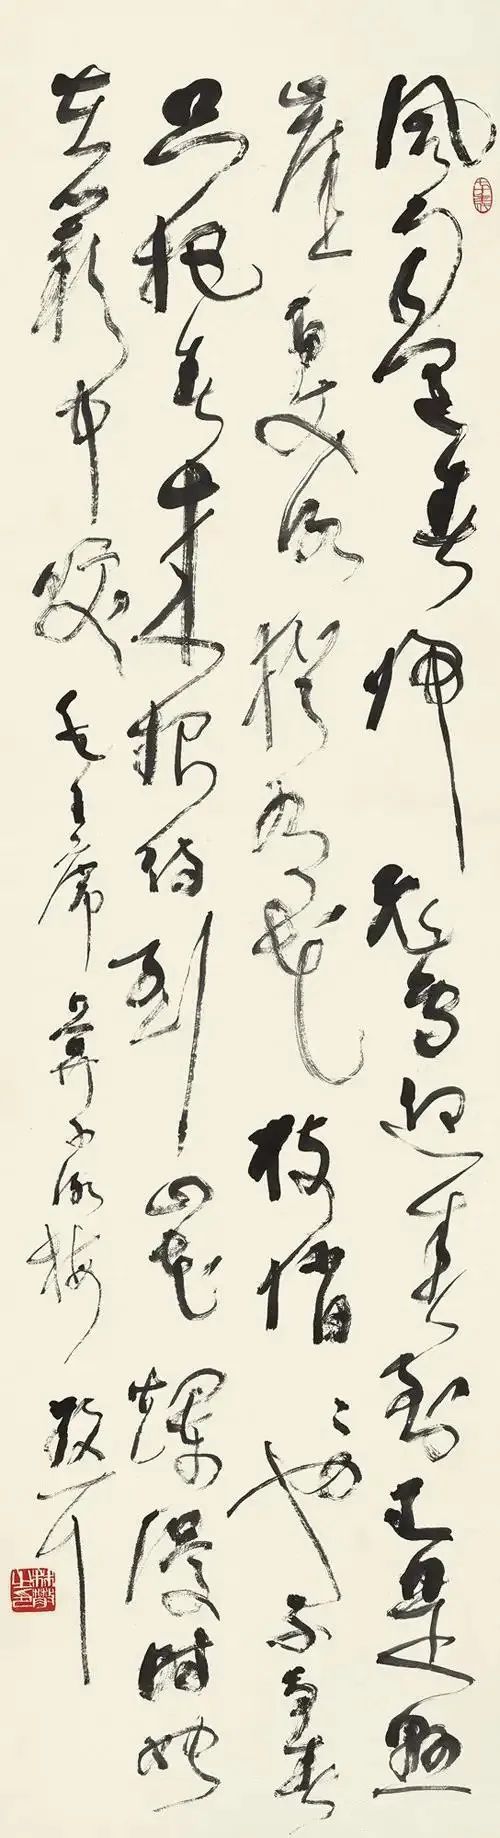 風雨送春歸飛雪迎春到已是懸
崖百丈冰猶有花枝俏〻也不爭春
只把春來報待到山花爛漫時她
在叢中笑毛主席卜算子詠梅散耳
林散之印